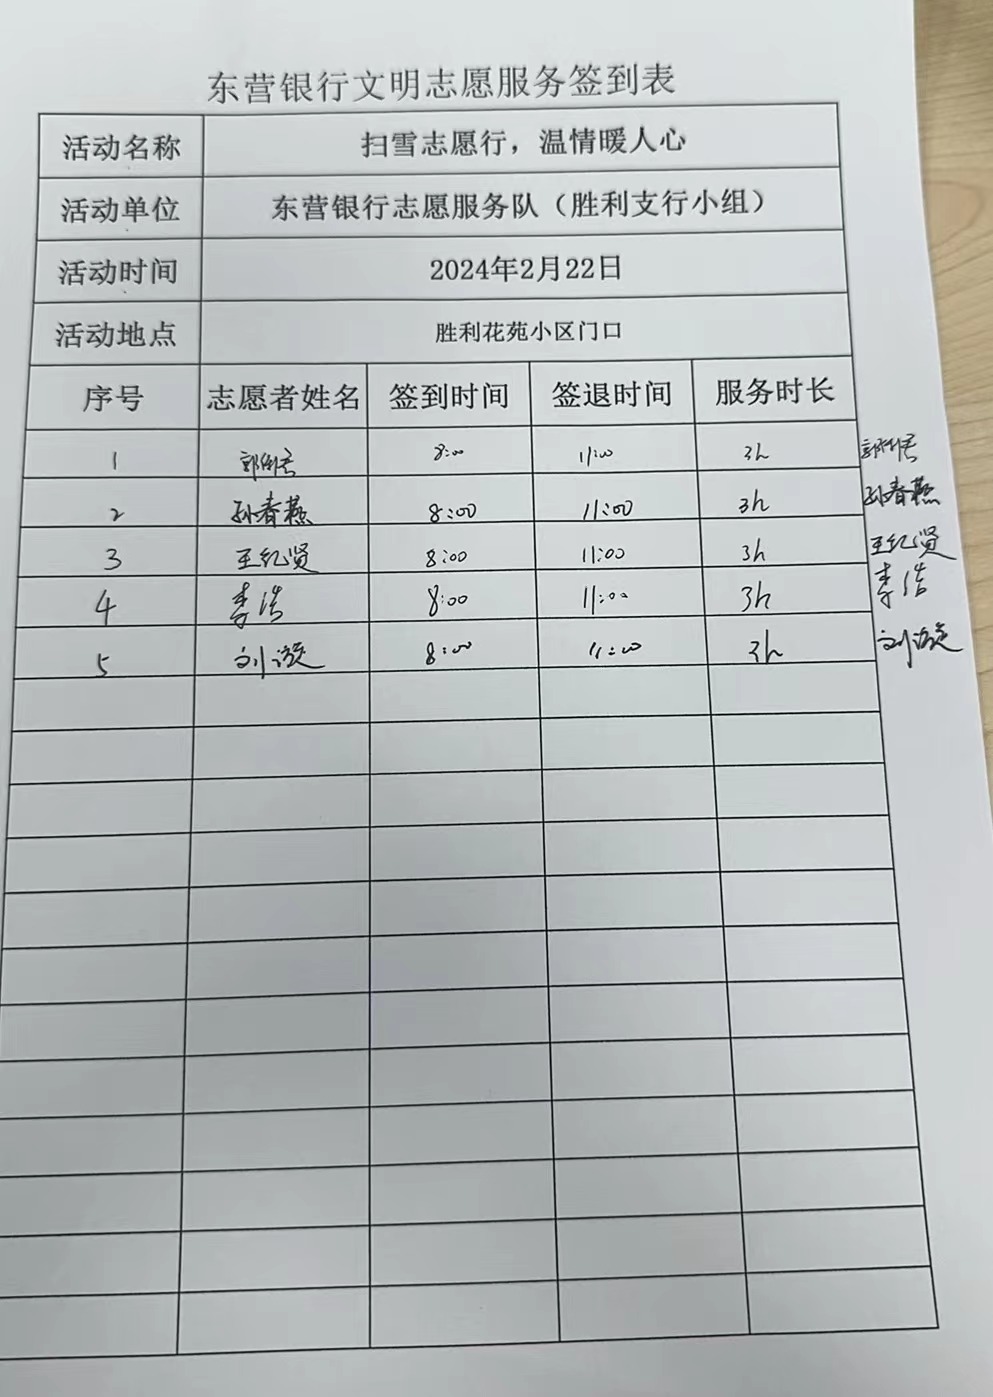 东营银行文明志愿服务签到表
活动名称 扫雪志愿行，温情暖人心
活动单位 东营银行志愿服务队（胜利支行小组）
活动时间 2024年2月22日
活动地点 胜利花苑小区门口
序号 志愿者姓名 签到时间 签退时间 服务时长
1 郭 8:00 11:00 3h 郭
2 孙春燕 8:00 11:00 3h 孙春燕
3 王纪贤 8:00 11:00 3h 王纪贤
4 李浩 8:00 11:00 3h 李浩
5 刘漩 8:00 11:00 3h 刘漩